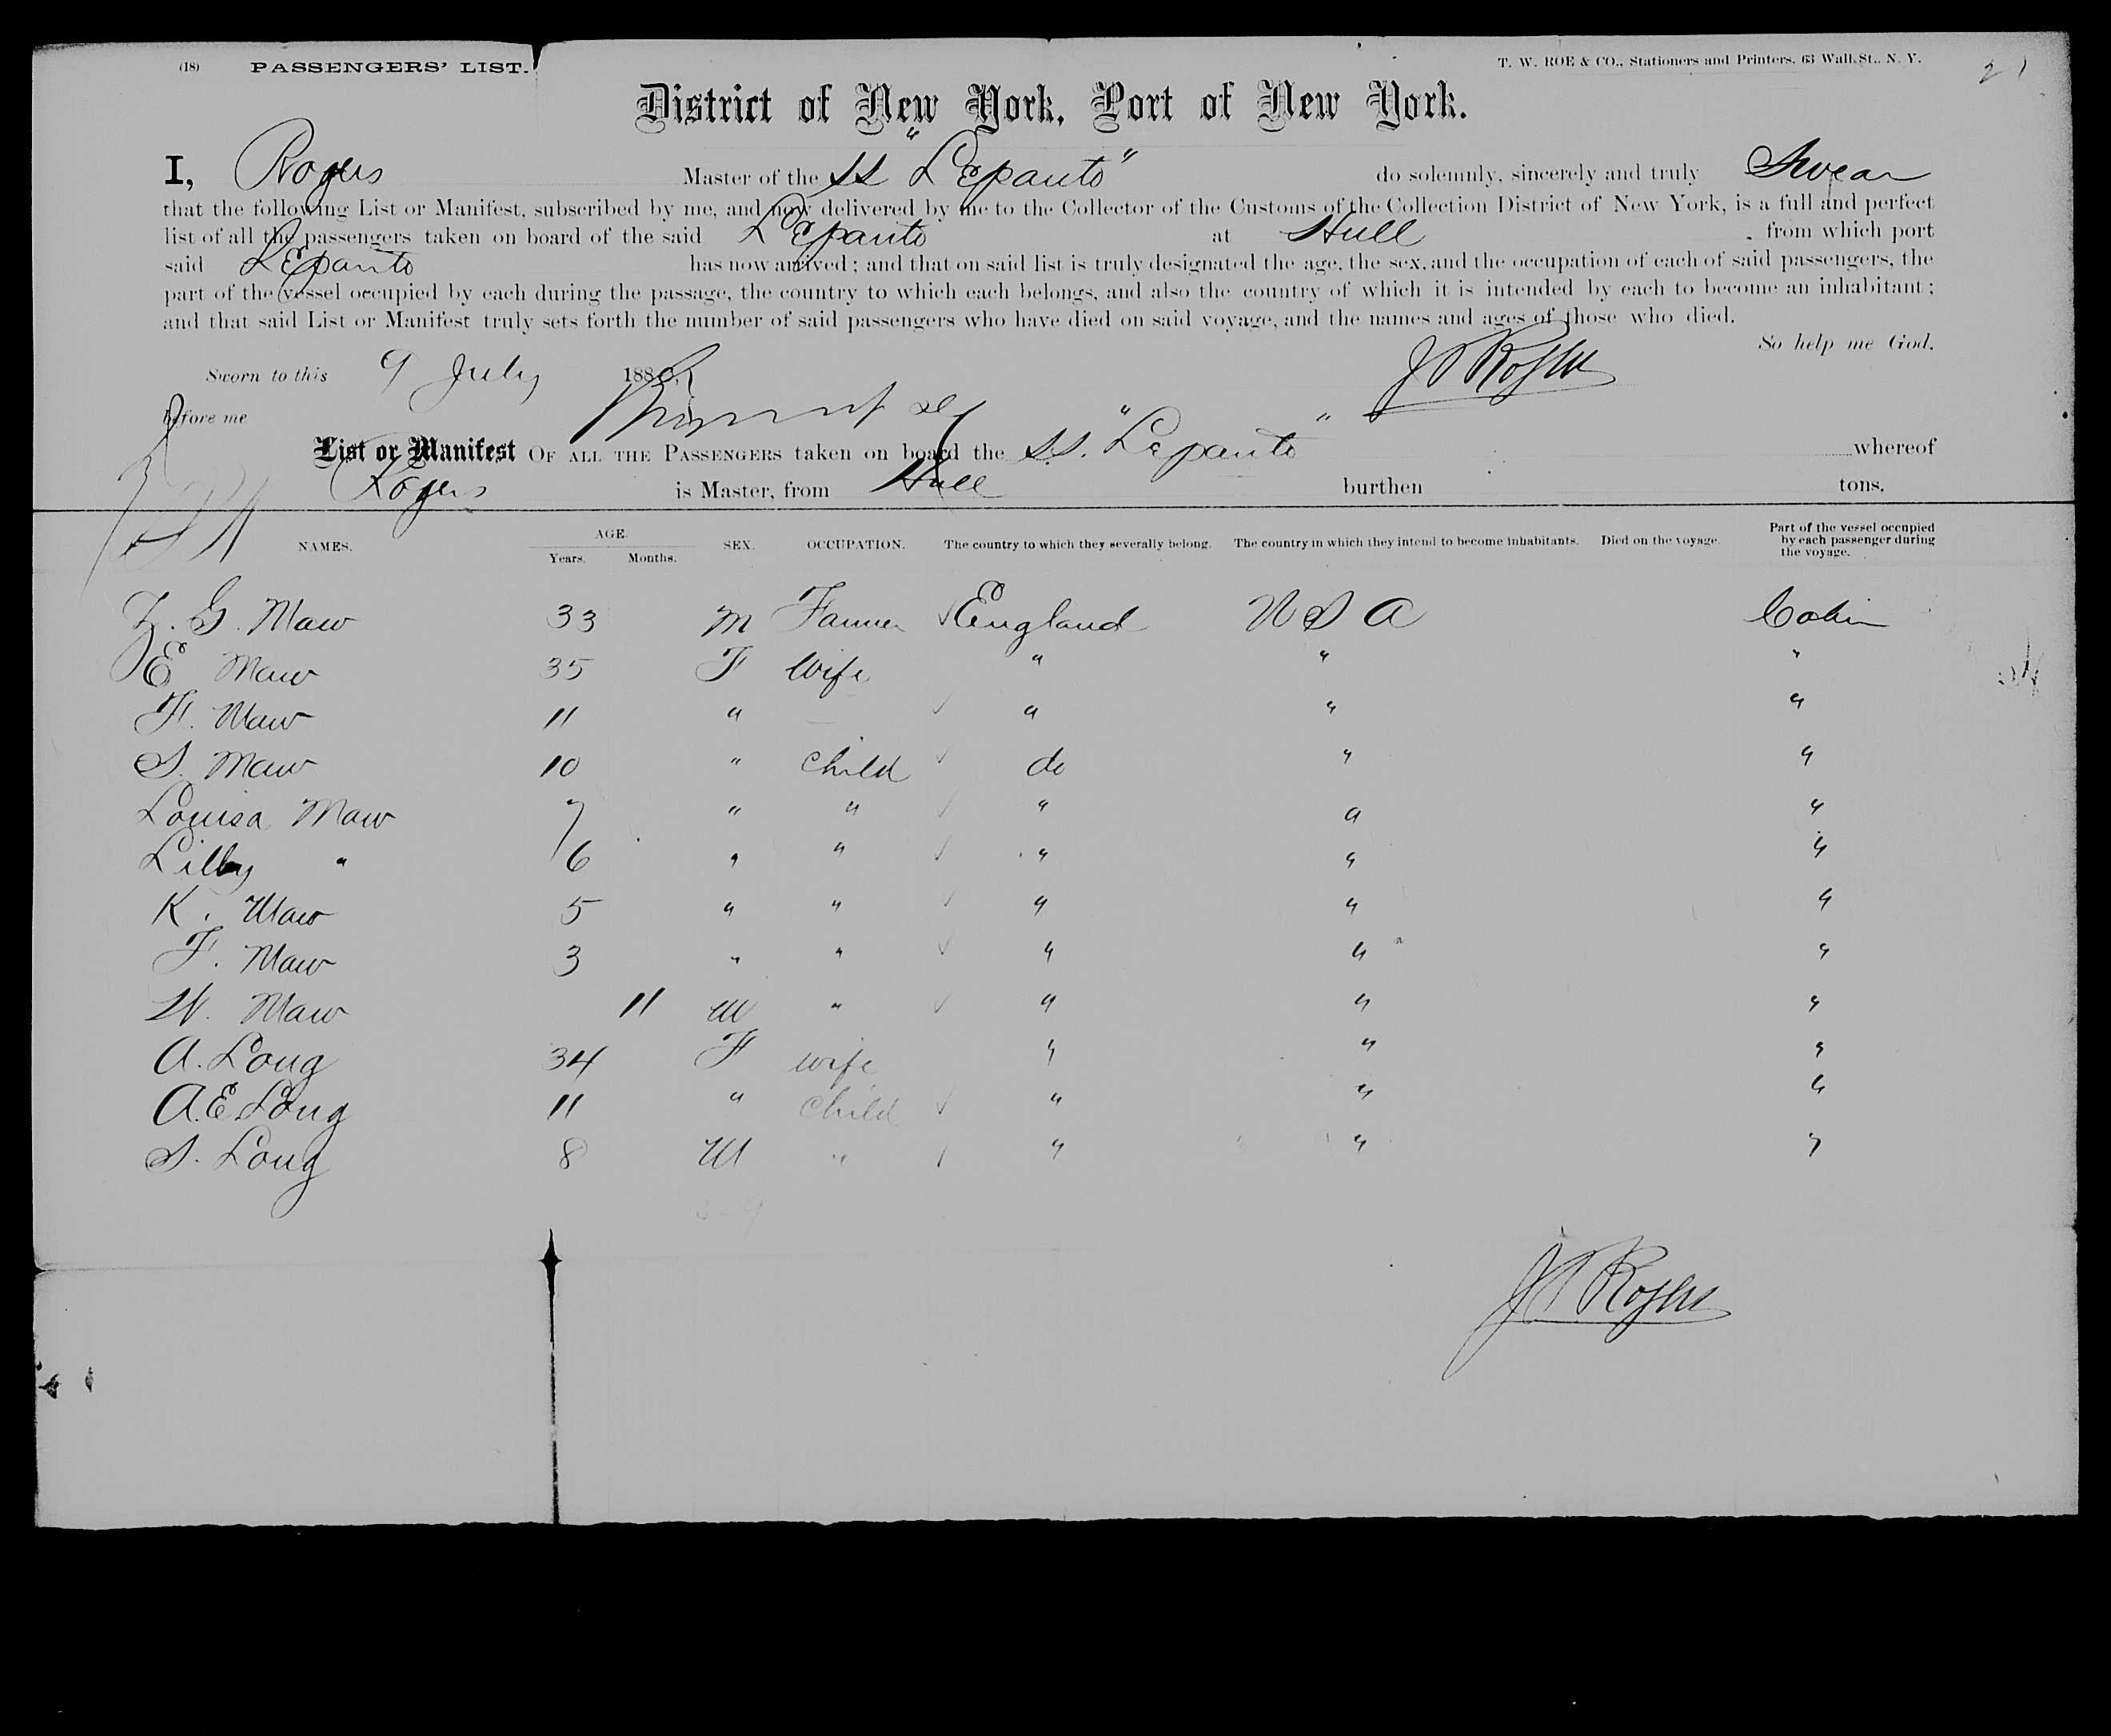 (18) PASSENGERS' LIST. T. W. ROE & CO., Stationers and Printers, 63 Wall St., N. Y. 21
District of New York, Port of New York.
I, Rogers Master of the SS "Lepanto" do solemnly, sincerely and truly Swear
that the following List or Manifest, subscribed by me, and now delivered by me to the Collector of the Customs of the Collection District of New York, is a full and perfect
list of all the passengers taken on board of the said Lepanto at Hull from which port
said Lepanto has now arrived; and that on said list is truly designated the age, the sex, and the occupation of each of said passengers, the
part of the vessel occupied by each during the passage, the country to which each belongs, and also the country of which it is intended by each to become an inhabitant;
and that said List or Manifest truly sets forth the number of said passengers who have died on said voyage, and the names and ages of those who died.
So help me God.
Sworn to this 9 July 188 Rogers
before me
List or Manifest OF ALL THE PASSENGERS taken on board the S.S. "Lepanto" whereof
Rogers is Master, from Hull burthen tons.
NAMES. AGE. Years. Months. SEX. OCCUPATION. The country to which they severally belong. The country in which they intend to become inhabitants. Died on the voyage. Part of the vessel occupied by each passenger during the voyage.
G. Maw 33 M Farmer England U S A Cabin
E Maw 35 F Wife " " "
F. Maw 11 " — " " "
S. Maw 10 " Child do " "
Louisa Maw 7 " " " " "
Lilly " 6 " " " " "
K. Maw 5 " " " " "
F. Maw 3 " " " " "
W. Maw 11 M " " " "
A. Long 34 F wife " " "
A.E. Long 11 " Child " " "
S. Long 8 M " " " "
Rogers